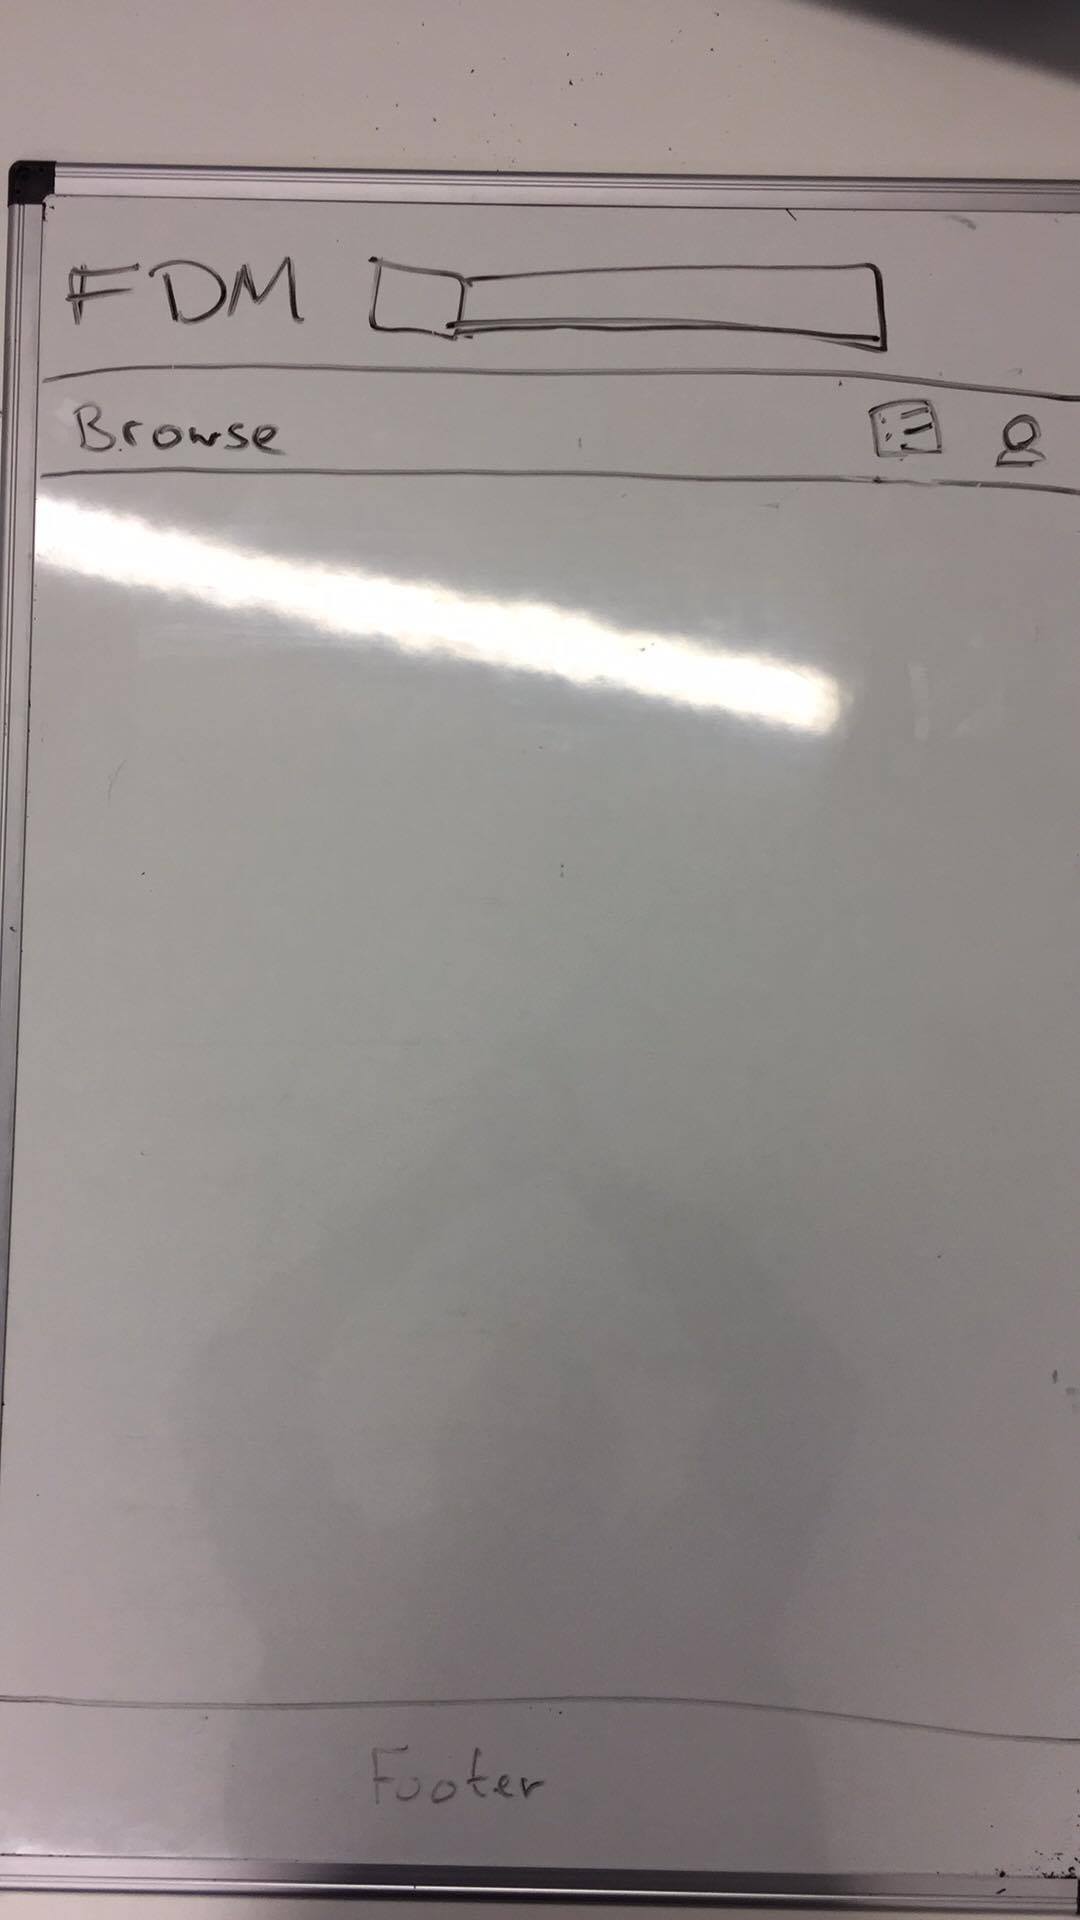 FDM
Browse
Footer